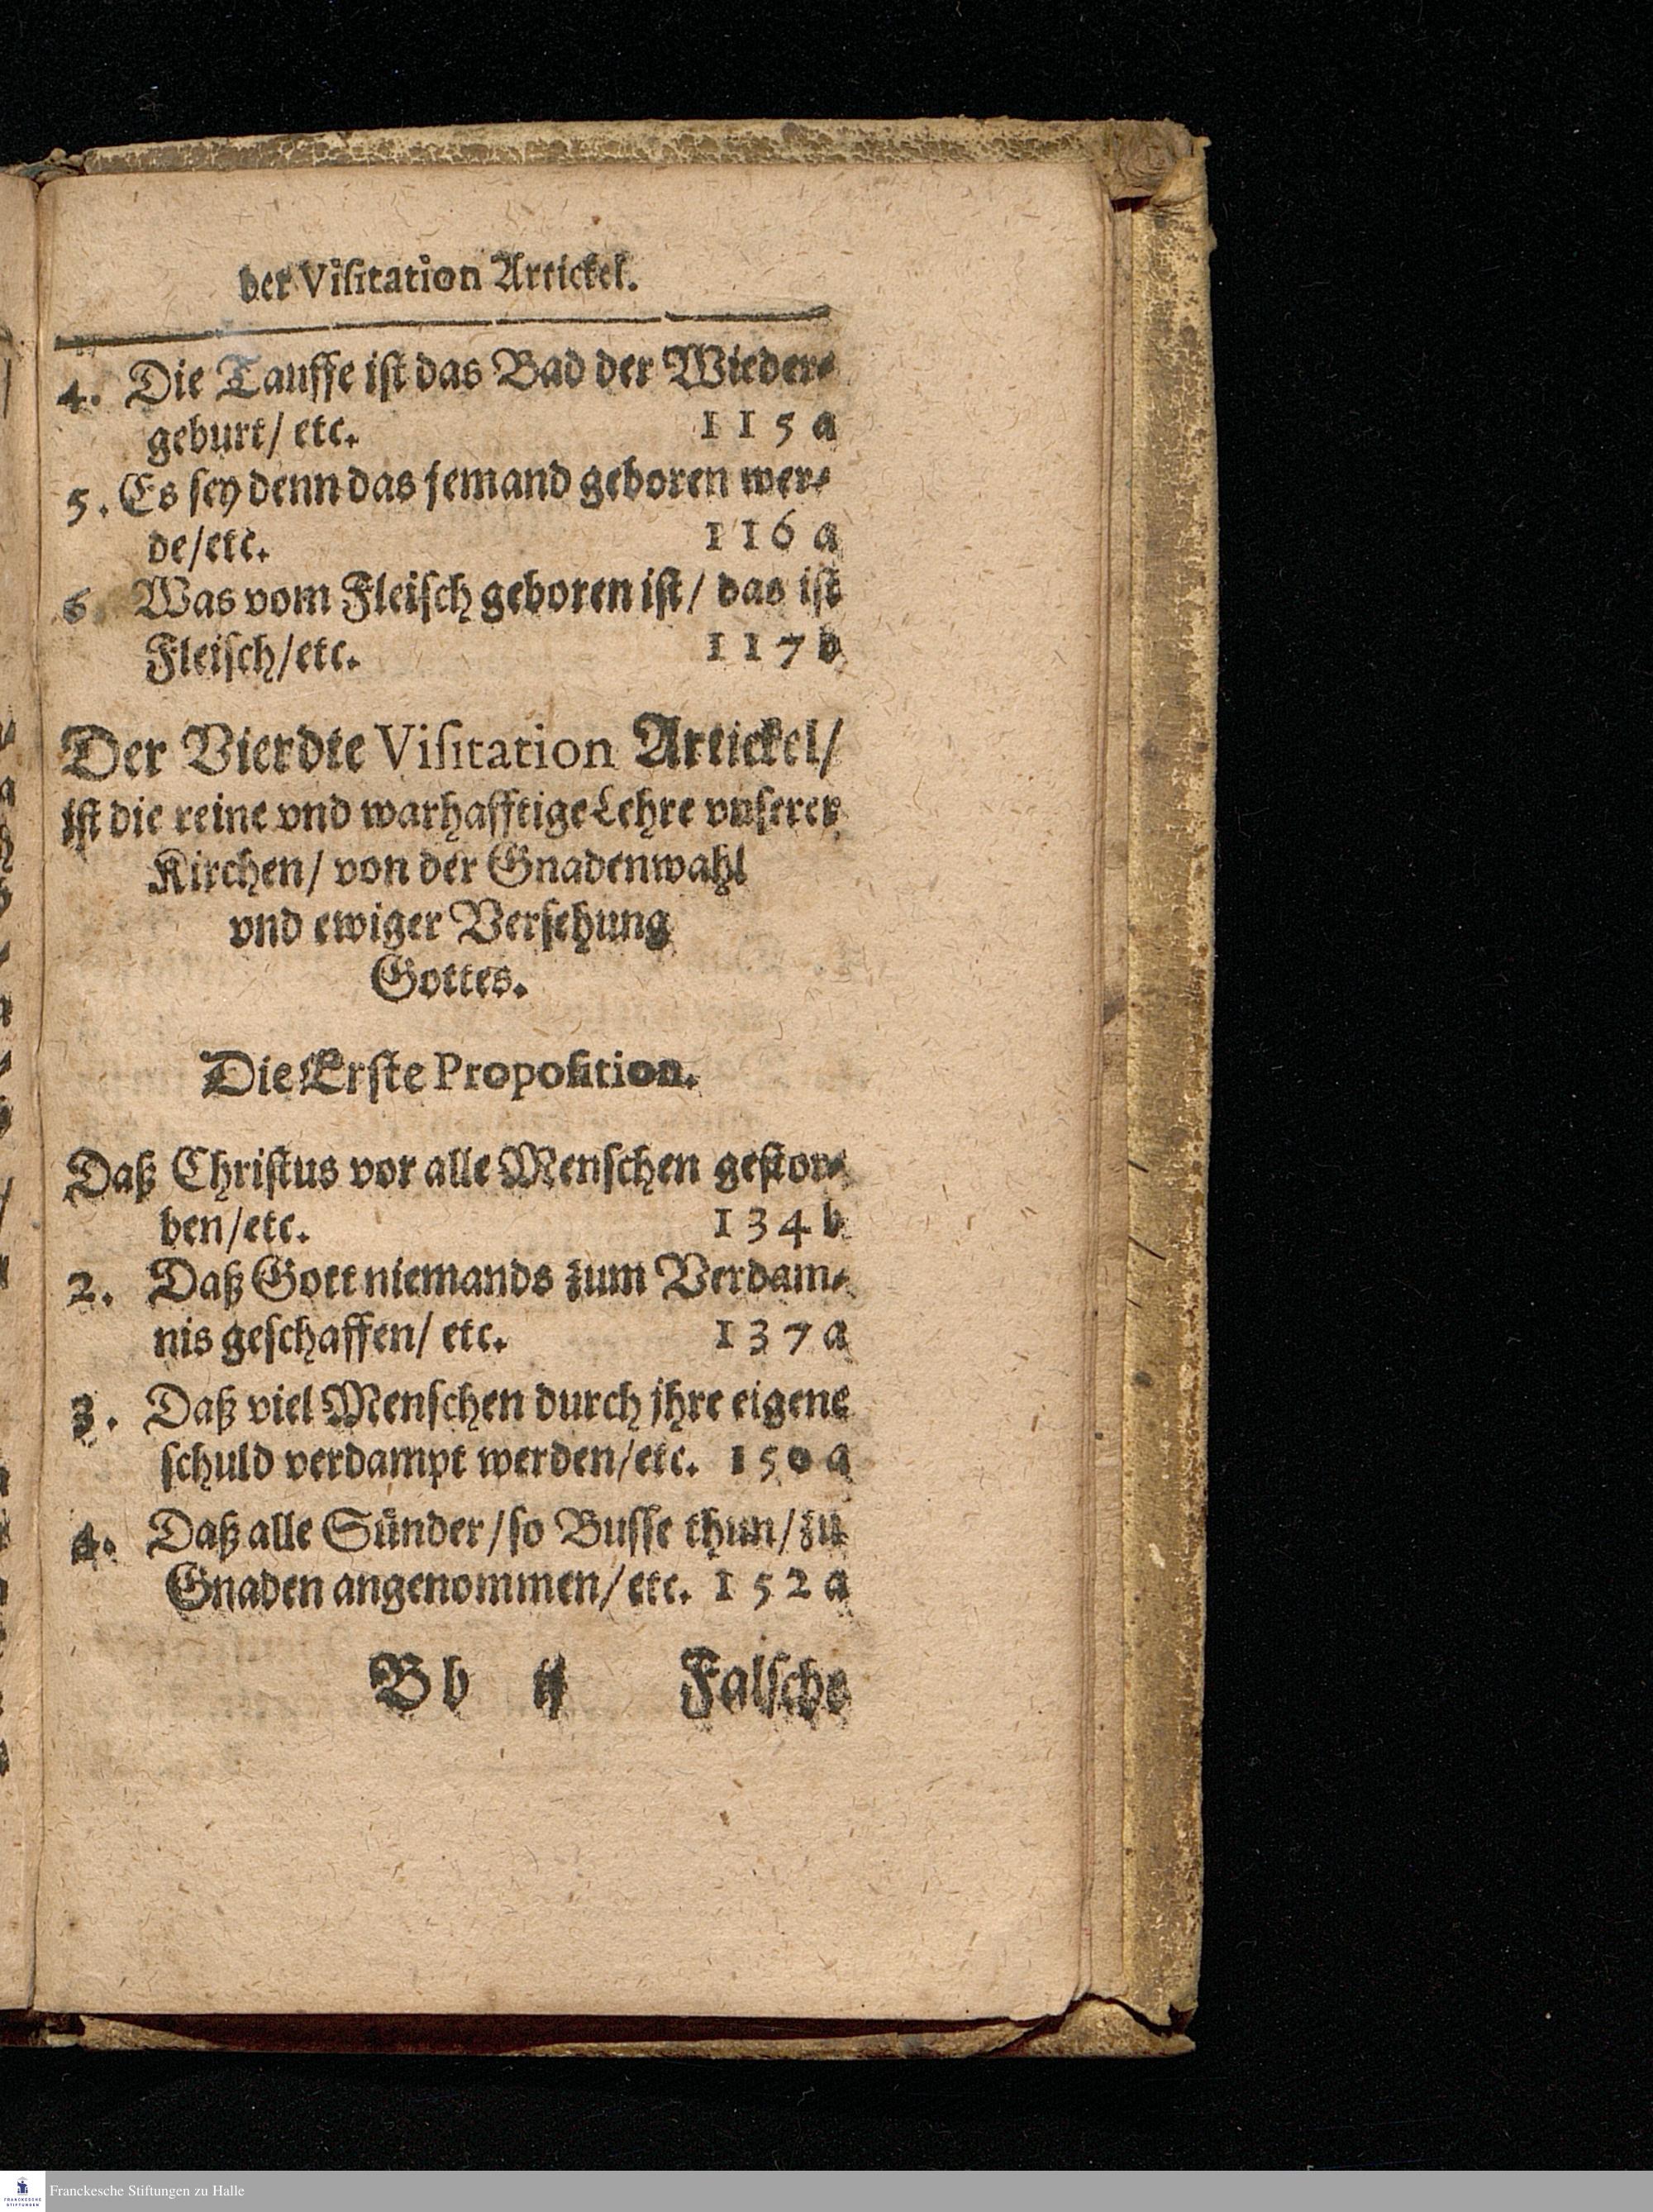 der Viſitation Artickel.
4. Die Tauffe iſt das Bad der Wieder⸗
geburt/ etc. 115 a
5. Es ſey denn das jemand geboren wer⸗
de/etc. 116 a
6. Was vom Fleiſch geboren iſt/ das iſt
Fleiſch/etc. 117 b
Der Vierdte Viſitation Artickel/
iſt die reine vnd warhafftige Lehre vnſerer
Kirchen/ von der Gnadenwahl
vnd ewiger Verſehung
Gottes.
Die Erſte Propoſition.
Daß Chriſtus vor alle Menſchen geſtor⸗
ben/etc. 134 b
2. Daß Gott niemands zum Verdam⸗
nis geſchaffen/ etc. 137 a
3. Daß viel Menſchen durch jhre eigene
ſchuld verdampt werden/etc. 150 a
4. Daß alle Sünder/ſo Buſſe thun/zu
Gnaden angenommen/etc. 152 a
Bb ij Falſche
FRANCKESCHE
STIFTUNGEN
Franckesche Stiftungen zu Halle